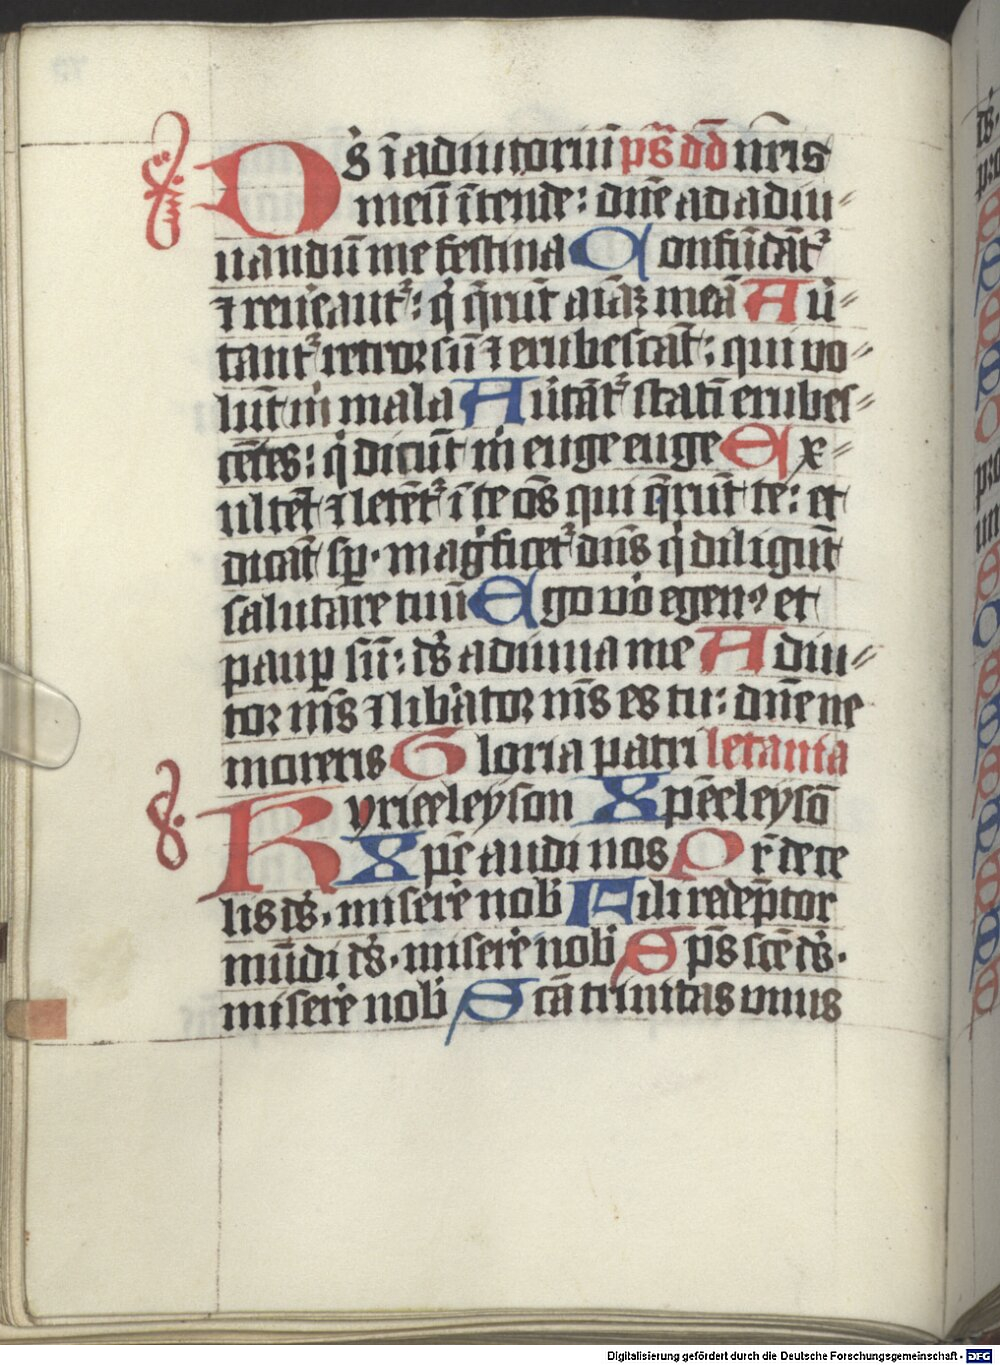 Ds̄ ī adiutoriū ps̄ dd̄ nr̄is
meū ītende: dn̄e ad adiu⸗
uandū me festina Confūdāt᷑
⁊ reue̅ant᷑: q̇ q̄rūt aīaꝫ meā Au̅⸗
tant᷑ retrorsū ⁊ erubescāt: qui uo⸗
lūt ṁ mala Au̅tāt᷑ statī erubes⸗
cētes: q̇ dicūt ṁ euge euge Ex⸗
ultēt ⁊ letēt᷑ ī te om̄s qui q̄rūt te: et
dicāt sp̄. magnificet᷑ dn̄s q̇ diligūt
salutare tuū Ego u̇o egenꝰ et
paup̱ sū: ds̄ adiuua me Adiu⸗
tor m̄s ⁊ lib̄ator m̄s es tu: dn̄e ne
moreris Gloria patri letania
Kyrieeleyson Xp̄eeleysō
Xp̄e audi nos Pr̄ de ce
lis ds̄. miserē nob̄ Fili redēptor
mūdi ds̄. miserē nob̄ Sp̄s scē ds̄.
miserē nob̄ Scā trinitas unus
Digitalisierung gefördert durch die Deutsche Forschungsgemeinschaft - DFG